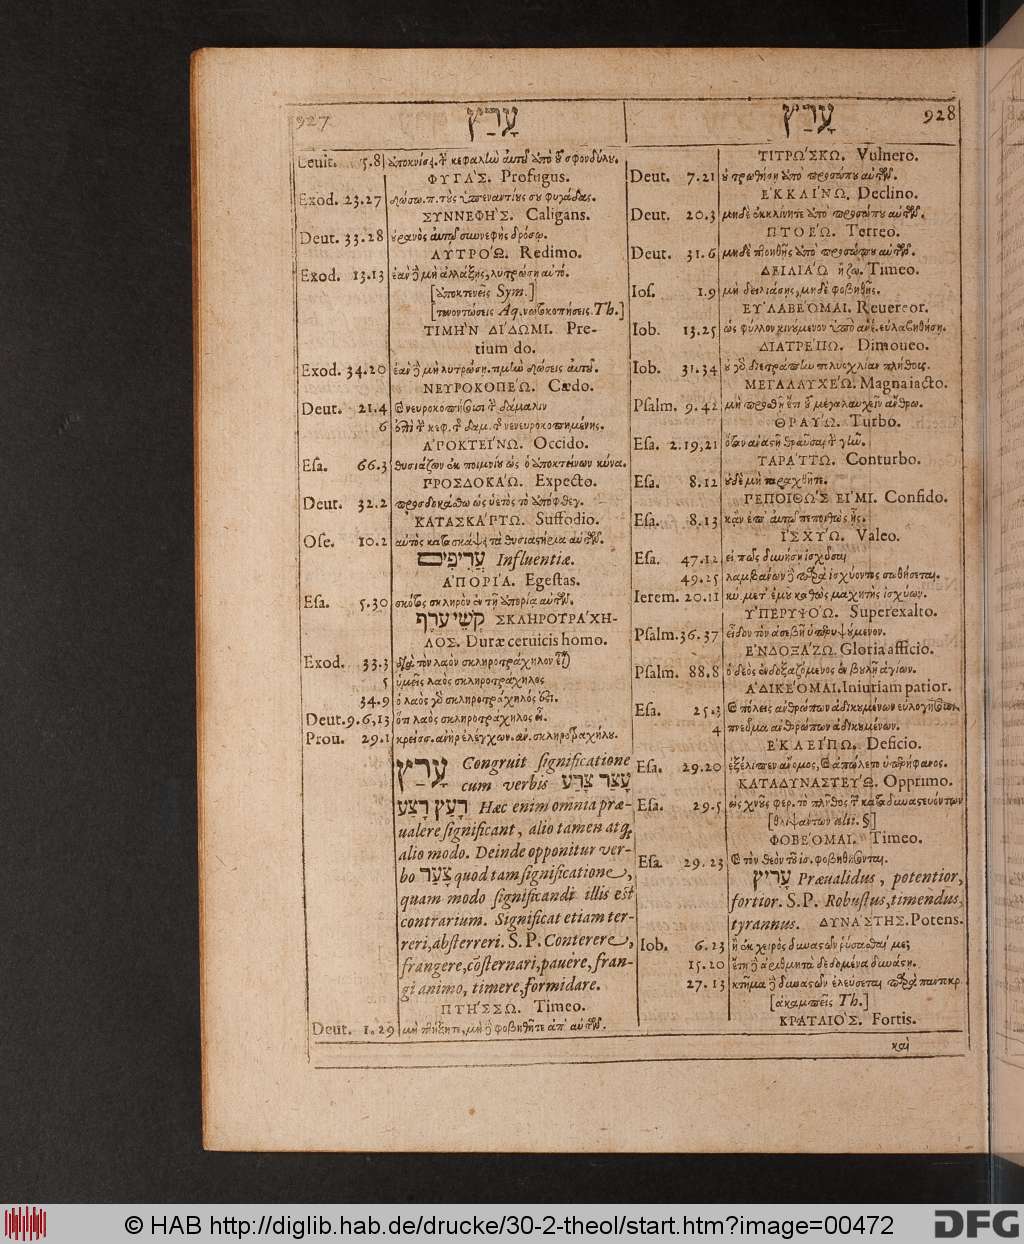 927 עָרַץ
Leuit. 5.8 κεφαλὴν σφονδύλου.
ΦΥΓΑ΄Σ. Profugus.
Exod. 23.27 δώσω. π. τοὺς ὑπεναντίους σου φυγάδας.
ΣΥΝΝΕΦΗ΄Σ. Caligans.
Deut. 33.28 οὐρανὸς αὐτῷ συννεφὴς δρόσῳ.
ΛΥΤΡΟ΄Ω. Redimo.
Exod. 13.13 ἐὰν δὲ μὴ ἀλλάξῃς, λυτρώσῃ αὐτό.
[ἀποκτενεῖς Sym.]
[τενοντώσεις Aq. νωτοκοπήσεις. Th.]
ΤΙΜΗ΄Ν ΔΙ΄ΔΩΜΙ. Pre-
tium do.
Exod. 34.20 ἐὰν δὲ μὴ λυτρώσῃ. τιμὴν δώσεις αὐτοῦ.
ΝΕΥΡΟΚΟΠΕ΄Ω. Cædo.
Deut. 21.4 δάμαλιν
6 ἐπὶ τ κεφ. τ δαμ. τ νενευροκοπημένης.
Α΄ΠΟΚΤΕΙ΄ΝΩ. Occido.
Esa. 66.3 θυσιάζων ὡς ὁ ἀποκτείνων κύνα.
ΠΡΟΣΔΟΚΑ΄Ω. Expecto.
Deut. 32.2 προσδοκάσθω ὡς ὑετὸς τὸ ἀπόφθεγ.
ΚΑΤΑΣΚΑ΄ΠΤΩ. Suffodio.
Ose. 10.2 αὐτὸς κατασκάψει τὰ θυσιαστήρια αὐτῶν.
עֲרִיפִים Influentiæ.
Α΄ΠΟΡΙ΄Α. Egestas.
Esa. 5.30 σκότος σκληρὸν ἐν τῇ ἀπορίᾳ αὐτῶν.
קְשֵׁי עֹרֶף ΣΚΛΗΡΟΤΡΑ΄ΧΗ-
ΛΟΣ. Duræ ceruicis homo.
Exod. 33.3 τὸν λαὸν σκληροτράχηλον
5 ὑμεῖς λαὸς σκληροτράχηλος
34.9 ὁ λαὸς γὸ σκληροτράχηλός ἐστι.
Deut. 9.6,13 ὅτι λαὸς σκληροτράχηλος εἶ.
Prou. 29.1 κρείσσ. ἀνὴρ ἐλέγχων. ἀν. σκληροτραχήλου.
עָרַץ Congruit significatione
cum verbis עָצר צָרַע
רָעַץ רָצַע Hæc enim omnia præ-
ualere significant, alio tamen atq,
alio modo. Deinde opponitur ver-
bo צָעַר quod tam significatione,
quam modo significandi illis est
contrarium. Significat etiam ter-
reri, absterreri. S. P. Conterere,
frangere, cõsternari, pauere, fran-
gi animo, timere, formidare.
ΠΤΗ΄ΣΣΩ. Timeo.
Deut. 1.29 μὴ πτήξητε, μὴ δὲ φοβηθῆτε ἀπ' αὐτῶν.
עָרַץ 928
ΤΙΤΡΩ΄ΣΚΩ. Vulnero.
Deut. 7.21 οὐ τρωθήσῃ ἀπὸ προσώπου αὐτῶν.
ΕΚΚΛΙ΄ΝΩ. Declino.
Deut. 20.3 μηδὲ ἐκκλίνητε ἀπὸ προσώπου αὐτῶν.
ΠΤΟΕ΄Ω. Terreo.
Deut. 31.6 μηδὲ πτοηθῇς ἀπὸ προσώπου αὐτῶν.
ΔΕΙΛΙΑ΄Ω ἢ ζω. Timeo.
Ios. 1.9 μὴ δειλιάσῃς, μηδὲ φοβηθῇς.
ΕΥ΄ΛΑΒΕ΄ΟΜΑΙ. Reuereor.
Iob. 13.25 ὡς φύλλον κινούμενον ὑπὸ ἀνέ. εὐλαβηθήσῃ.
ΔΙΑΤΡΕ΄ΠΩ. Dimoueo.
Iob. 31.34 διετράπην πολυοχλίαν πλήθους.
ΜΕΓΑΛΑΥΧΕ΄Ω. Magna iacto.
Psalm. 9.42 μὴ προσθῇ ἔτι μεγαλαυχεῖν ἄνθρω.
ΘΡΑΥ΄Ω. Turbo.
Esa. 2.19,21 ὅταν ἀναστῇ θραῦσαι τ γῆν.
ΤΑΡΑ΄ΤΤΩ. Conturbo.
Esa. 8.12 οὐδὲ μὴ ταραχθῆτε.
ΠΕΠΟΙΘΩ΄Σ ΕΙ΄ΜΙ. Confido.
Esa. 8.13 κἂν ἐπ' αὐτῷ πεποιθὼς ᾖς.
Ι΄ΣΧΥ΄Ω. Valeo.
Esa. 47.12 εἰ πως δυνήσῃ ἰσχῦσαι
49.25 λαμβάνων δὲ παρὰ ἰσχύοντος σωθήσεται.
Ierem. 20.11 κύ. μετ' ἐμοῦ καθὼς μαχητὴς ἰσχύων.
ΥΠΕΡΥΨΟ΄Ω. Superexalto.
Psalm. 36.37 εἶδον τὸν ἀσεβῆ ὑπερυψούμενον.
Ε΄ΝΔΟΞΑ΄ΖΩ. Gloria afficio.
Psalm. 88.8 ὁ θεὸς ἐνδοξαζόμενος ἐν βουλῇ ἁγίων.
Α΄ΔΙΚΕ΄ΟΜΑΙ. Iniuriam patior.
Esa. 25.3 πόλεις ἀνθρώπων ἀδικουμένων εὐλογήσουσιν.
4 πνεῦμα ἀνθρώπων ἀδικουμένων.
Ε΄ΚΛΕΙ΄ΠΩ. Deficio.
Esa. 29.20 ἐξέλιπεν ἄνομος, ἀπώλετο ὑπερήφανος.
ΚΑΤΑΔΥΝΑΣΤΕΥ΄Ω. Opprimo.
Esa. 29.5 ὡς χνοῦς φερ. τὸ πλῆθος τ καταδυναστευόντων
[θλιψάντων alit. §]
ΦΟΒΕ΄ΟΜΑΙ. Timeo.
Esa. 29.23 τὸν θεὸν τοῦ ἰσ. φοβηθήσονται.
עָרִיץ Præualidus, potentior,
fortior. S. P. Robustus, timendus,
tyrannus. ΔΥΝΑ΄ΣΤΗΣ. Potens.
Iob. 6.23 ἢ ἐκ χειρὸς δυναστῶν ῥύσασθαί με;
15.20 ἔτη δὲ ἀριθμητὰ δεδομένα δυνάστῃ.
27.13 κτῆμα δὲ δυναστῶν ἐλεύσεται παρὰ παντοκρ.
[ἀκαμπεῖς Th.]
ΚΡΑΤΑΙΟ΄Σ. Fortis.
καὶ
© HAB http://diglib.hab.de/drucke/30-2-theol/start.htm?image=00472
DFG